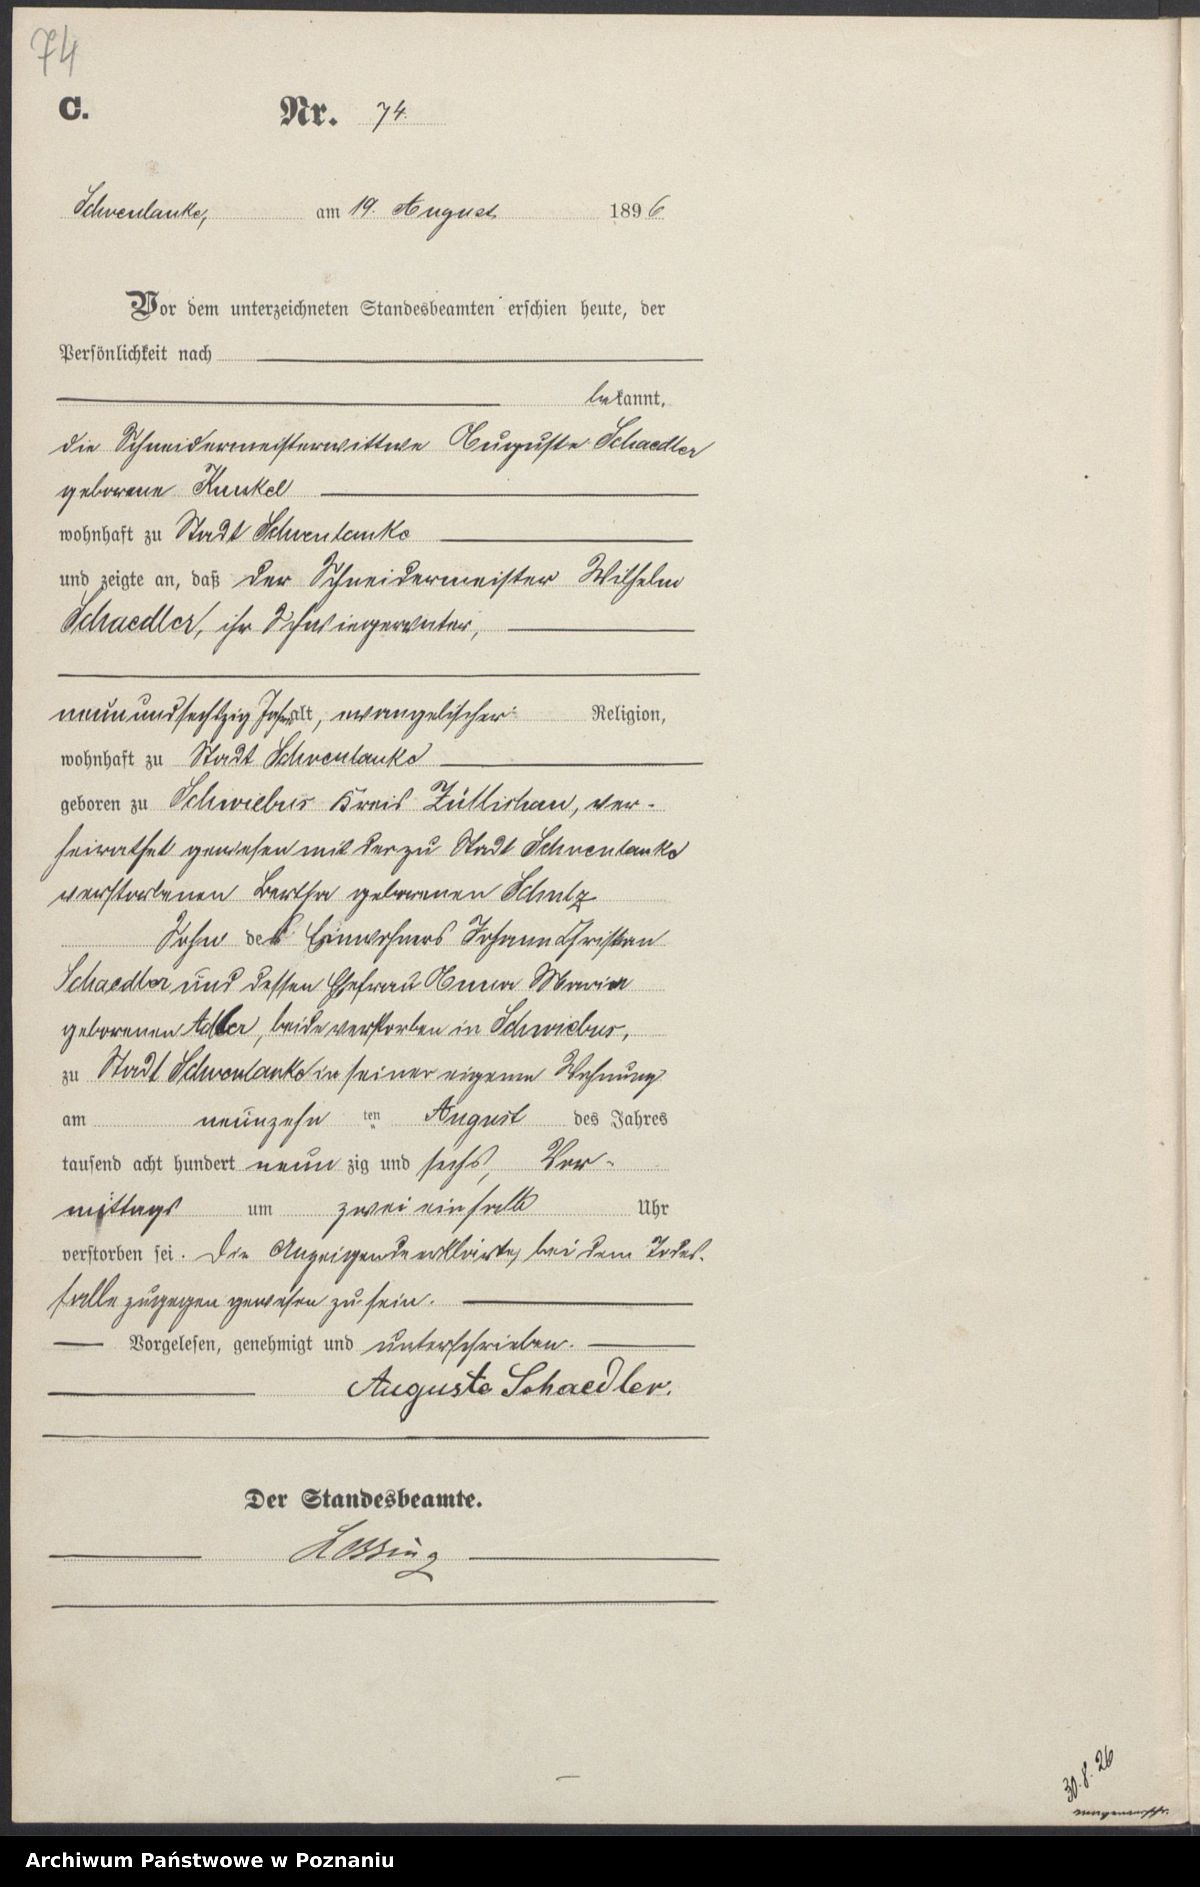 74
C. Nr. 74.
Schoenlanke, am 19. August 1896
Vor dem unterzeichneten Standesbeamten erschien heute, der
Persönlichkeit nach
bekannt,
die Schneidermeisterwittwe Auguste Schaedler
geborene Kunkel
wohnhaft zu Stadt Schoenlanke
und zeigte an, daß der Schneidermeister Wilhelm
Schaedler, ihr Schwiegervater,
neunundsechszig Jahre alt, evangelischer Religion,
wohnhaft zu Stadt Schoenlanke
geboren zu Schwiebus Kreis Züllichau, ver-
heirathet gewesen mit der zu Stadt Schoenlanke
verstorbenen Bertha geborenen Schulz
Sohn des Einwohners Johann Christian
Schaedler und dessen Ehefrau Anna Maria
geborenen Adler, beide verstorben in Schwiebus,
zu Stadt Schoenlanke in seiner eigenen Wohnung
am neunzehn ten August des Jahres
tausend acht hundert neun zig und sechs, Vor-
mittags um zwei ein halb Uhr
verstorben sei. Die Anzeigende erklärte, bei dem Todes-
falle zugegen gewesen zu sein.
Vorgelesen, genehmigt und unterschrieben.
Auguste Schaedler.
Der Standesbeamte.
Lessing
30.8.26
Archiwum Państwowe w Poznaniu